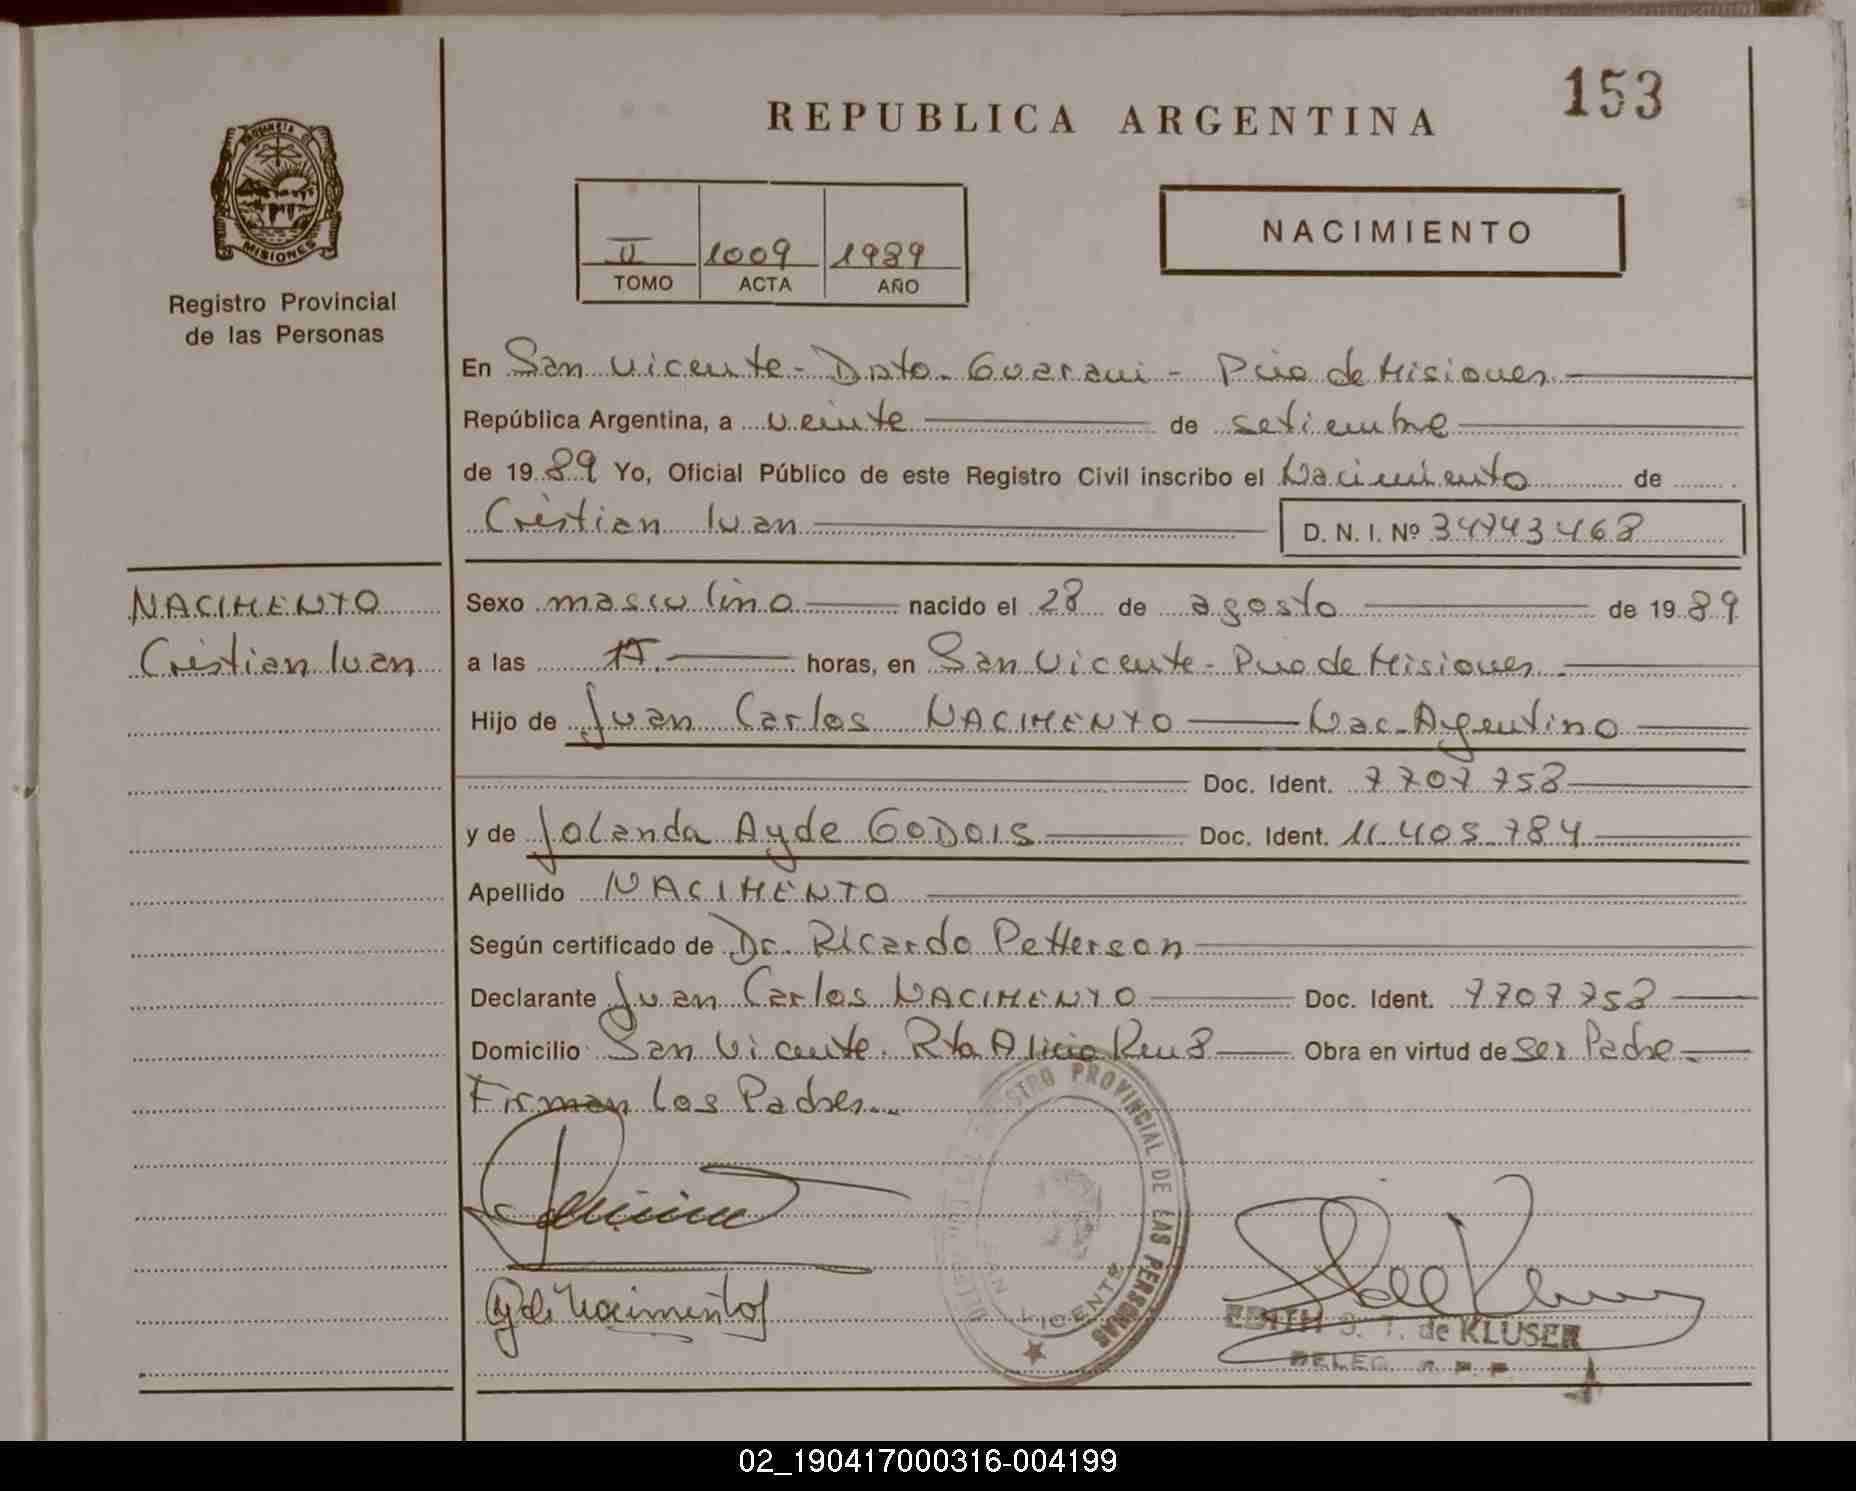 153
REPUBLICA ARGENTINA
PROVINCIA DE
MISIONES
Registro Provincial
de las Personas
II 1009 1989
TOMO ACTA AÑO
NACIMIENTO
En San Vicente - Dpto. Guarani - Pcia de Misiones
República Argentina, a veinte de setiembre
de 1989 Yo, Oficial Público de este Registro Civil inscribo el Nacimiento de
Cristian Ivan D. N. I. Nº 34743468
NACIMENTO
Cristian Ivan
Sexo masculino nacido el 28 de agosto de 1989
a las horas, en San Vicente - Pcia de Misiones
Hijo de Juan Carlos NACIMENTO Nac. Argentino
Doc. Ident. 7707758
y de Jolanda Ayde GODOIS Doc. Ident. 11.405.784
Apellido NACIMENTO
Según certificado de Dr. Ricardo Petterson
Declarante Juan Carlos NACIMENTO Doc. Ident. 7707758
Domicilio San Vicente. Rta Alicia Obra en virtud de ser Padre
Firman los Padres
REGISTRO PROVINCIAL DE LAS PERSONAS
SAN VICENTE
EDITH S. T. de KLUSER
DELEG. R. P. P.
02_190417000316-004199